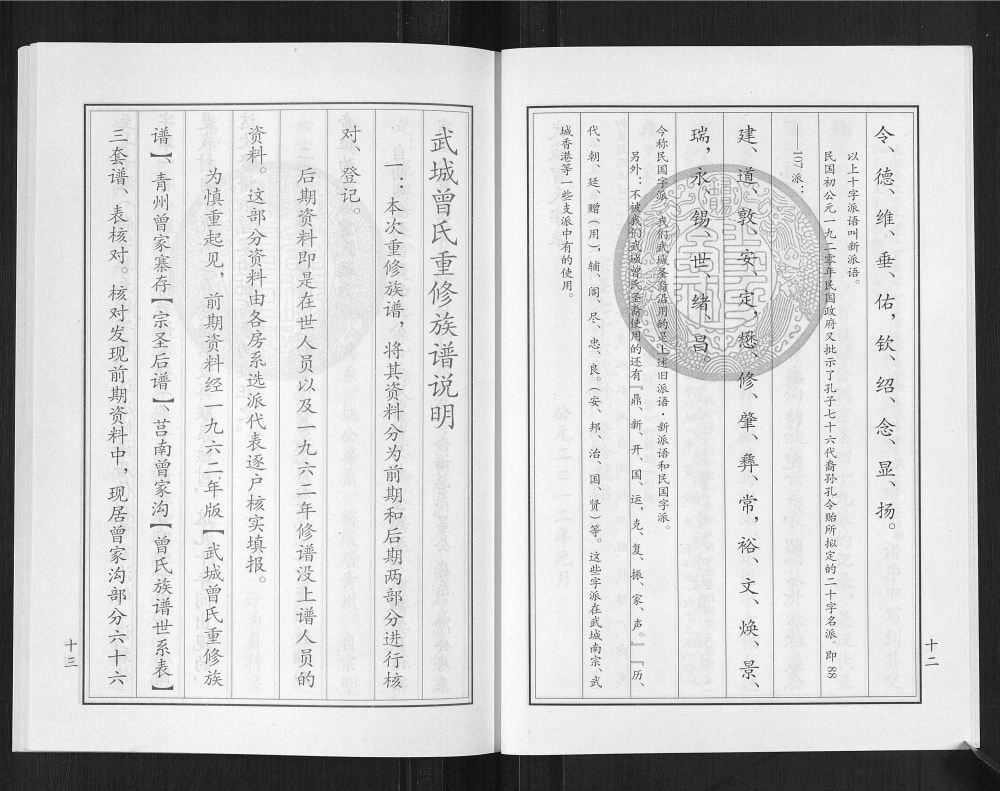 令、德、维、垂、佑，钦、绍、念、显、扬。
以上十字派语叫新派语。
民国初公元一九二零年民国政府又批示了孔子七十六代裔孙孔令贻所拟定的二十字名派。即88
——107派：
建、道、敦、安、定，懋、修、肇、彝、常，裕、文、焕、景、
瑞，永、锡、世、绪、昌。
今称民国字派。我们武城圣裔沿用的是上述旧派语·新派语和民国字派。
另外：不被我们武城曾氏圣裔使用的还有『鼎、新、开、国、运，克、复、振、家、声。』『历、
代、朝、廷、赠（用），辅、阁、尽、忠、良。（安、邦、治、国、贤）等。这些字派在武城南宗、武
城香港等一些支派中有的使用。
十二
武城曾氏重修族谱说明
一：本次重修族谱，将其资料分为前期和后期两部分进行核
对、登记。
后期资料即是在世人员以及一九六二年修谱没上谱人员的
资料。这部分资料由各房系选派代表逐户核实填报。
为慎重起见，前期资料经一九六二年版【武城曾氏重修族
谱】、青州曾家寨存【宗圣后谱】、莒南曾家沟【曾氏族谱世系表】
三套谱、表核对。核对发现前期资料中，现居曾家沟部分六十六
十三